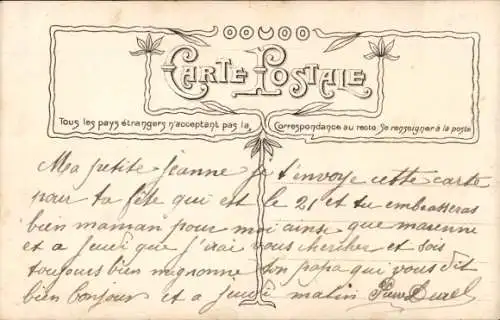 CARTE POSTALE
Tous les pays étrangers n'acceptant pas la Correspondance au recto. Se renseigner à la poste
Ma petite Jeanne je t'envoye cette carte
pour ta fête qui est le 21 et tu embrasseras
bien maman pour moi ainse que marenne
et a jeudi que j'irai vous chercher et sois
toujours bien mignonne ton papa qui vous dit
bien bonjour et a jeudi matin Pierre